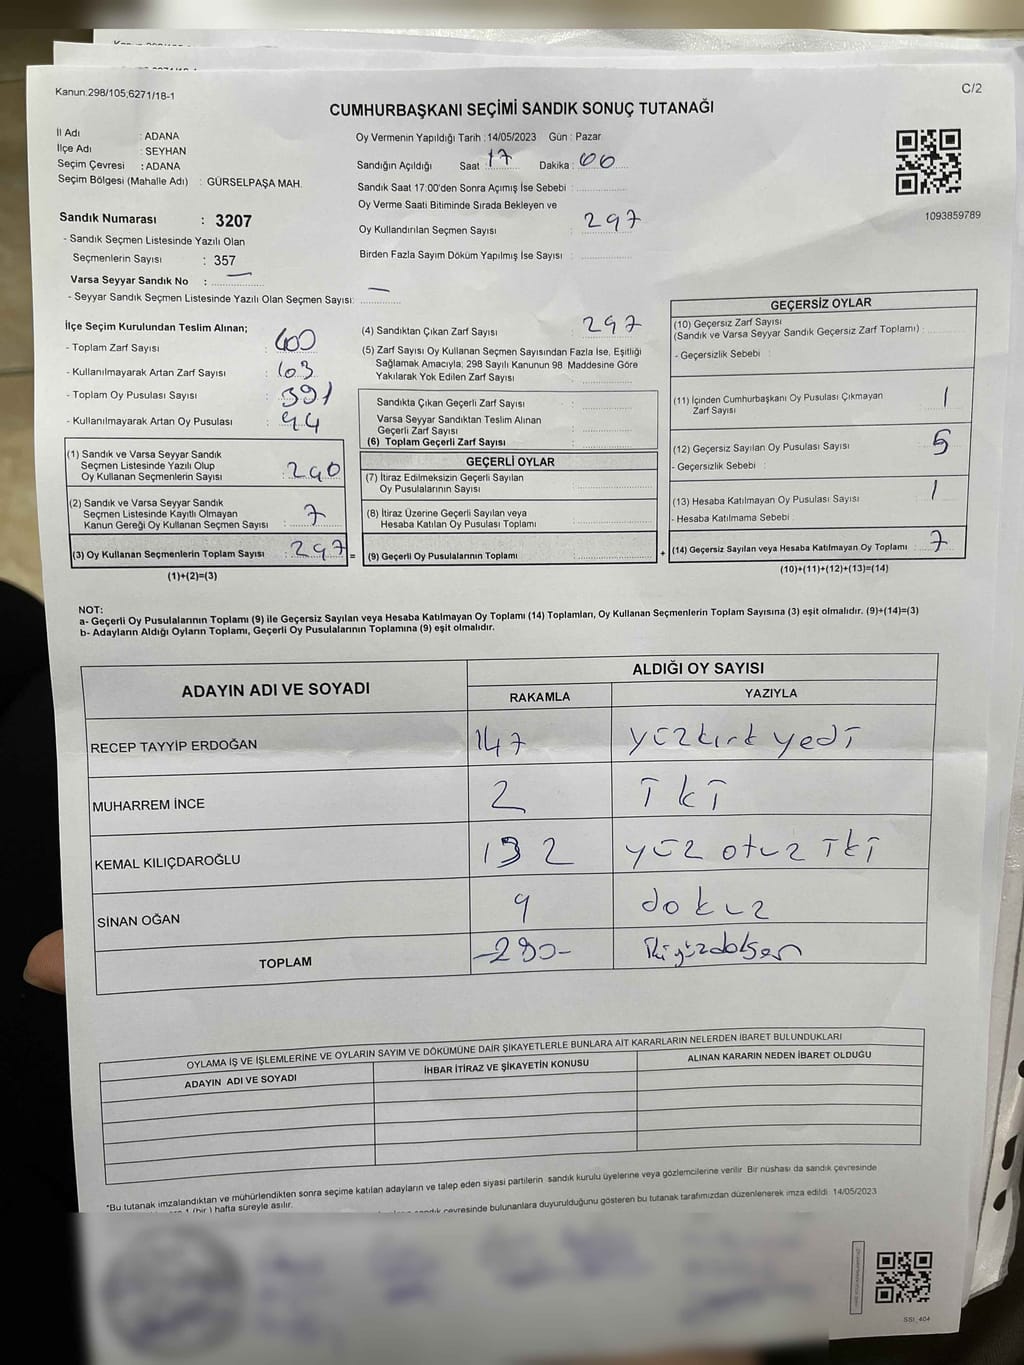 Kanun.298/105;6271/18-1
C/2
CUMHURBAŞKANI SEÇİMİ SANDIK SONUÇ TUTANAĞI
İl Adı : ADANA
İlçe Adı : SEYHAN
Seçim Çevresi : ADANA
Seçim Bölgesi (Mahalle Adı) : GÜRSELPAŞA MAH.
Oy Vermenin Yapıldığı Tarih : 14/05/2023 Gün : Pazar
Sandığın Açıldığı Saat : 17 Dakika : 00
Sandık Saat 17:00'den Sonra Açımış İse Sebebi :
Oy Verme Saati Bitiminde Sırada Bekleyen ve
Oy Kullandırılan Seçmen Sayısı : 297
Birden Fazla Sayım Döküm Yapılmış İse Sayısı :
1093859789
Sandık Numarası : 3207
- Sandık Seçmen Listesinde Yazılı Olan
Seçmenlerin Sayısı : 357
Varsa Seyyar Sandık No : —
- Seyyar Sandık Seçmen Listesinde Yazılı Olan Seçmen Sayısı: —
İlçe Seçim Kurulundan Teslim Alınan;
- Toplam Zarf Sayısı : 400
- Kullanılmayarak Artan Zarf Sayısı : 103
- Toplam Oy Pusulası Sayısı : 391
- Kullanılmayarak Artan Oy Pusulası : 94
(1) Sandık ve Varsa Seyyar Sandık
Seçmen Listesinde Yazılı Olup
Oy Kullanan Seçmenlerin Sayısı : 290
(2) Sandık ve Varsa Seyyar Sandık
Seçmen Listesinde Kayıtlı Olmayan
Kanun Gereği Oy Kullanan Seçmen Sayısı : 7
(3) Oy Kullanan Seçmenlerin Toplam Sayısı : 297 =
(1)+(2)=(3)
(4) Sandıktan Çıkan Zarf Sayısı : 297
(5) Zarf Sayısı Oy Kullanan Seçmen Sayısından Fazla İse, Eşitliği
Sağlamak Amacıyla; 298 Sayılı Kanunun 98. Maddesine Göre
Yakılarak Yok Edilen Zarf Sayısı :
Sandıkta Çıkan Geçerli Zarf Sayısı :
Varsa Seyyar Sandıktan Teslim Alınan
Geçerli Zarf Sayısı :
(6) Toplam Geçerli Zarf Sayısı :
GEÇERLİ OYLAR
(7) İtiraz Edilmeksizin Geçerli Sayılan
Oy Pusulalarının Sayısı :
(8) İtiraz Üzerine Geçerli Sayılan veya
Hesaba Katılan Oy Pusulası Toplamı :
(9) Geçerli Oy Pusulalarının Toplamı : +
GEÇERSİZ OYLAR
(10) Geçersiz Zarf Sayısı
(Sandık ve Varsa Seyyar Sandık Geçersiz Zarf Toplamı) :
- Geçersizlik Sebebi :
(11) İçinden Cumhurbaşkanı Oy Pusulası Çıkmayan
Zarf Sayısı : 1
(12) Geçersiz Sayılan Oy Pusulası Sayısı : 5
- Geçersizlik Sebebi :
(13) Hesaba Katılmayan Oy Pusulası Sayısı : 1
- Hesaba Katılmama Sebebi :
(14) Geçersiz Sayılan veya Hesaba Katılmayan Oy Toplamı : 7
(10)+(11)+(12)+(13)=(14)
NOT:
a- Geçerli Oy Pusulalarının Toplamı (9) ile Geçersiz Sayılan veya Hesaba Katılmayan Oy Toplamı (14) Toplamları, Oy Kullanan Seçmenlerin Toplam Sayısına (3) eşit olmalıdır. (9)+(14)=(3)
b- Adayların Aldığı Oyların Toplamı, Geçerli Oy Pusulalarının Toplamına (9) eşit olmalıdır.
ADAYIN ADI VE SOYADI
ALDIĞI OY SAYISI
RAKAMLA YAZIYLA
RECEP TAYYİP ERDOĞAN 147 yüzkırk yedi
MUHARREM İNCE 2 iki
KEMAL KILIÇDAROĞLU 132 yüz otuz iki
SİNAN OĞAN 9 dokuz
TOPLAM -290- ikiyüzdoksan
OYLAMA İŞ VE İŞLEMLERİNE VE OYLARIN SAYIM VE DÖKÜMÜNE DAİR ŞİKAYETLERLE BUNLARA AİT KARARLARIN NELERDEN İBARET BULUNDUKLARI
ADAYIN ADI VE SOYADI İHBAR İTİRAZ VE ŞİKAYETİN KONUSU ALINAN KARARIN NEDEN İBARET OLDUĞU
*Bu tutanak imzalandıktan ve mühürlendikten sonra seçime katılan adayların ve talep eden siyasi partilerin sandık kurulu üyelerine veya gözlemcilerine verilir. Bir nüshası da sandık çevresinde
1 (bir) hafta süreyle asılır.
sandık çevresinde bulunanlara duyurulduğunu gösteren bu tutanak tarafımızdan düzenlenerek imza edildi. 14/05/2023
SSI_404